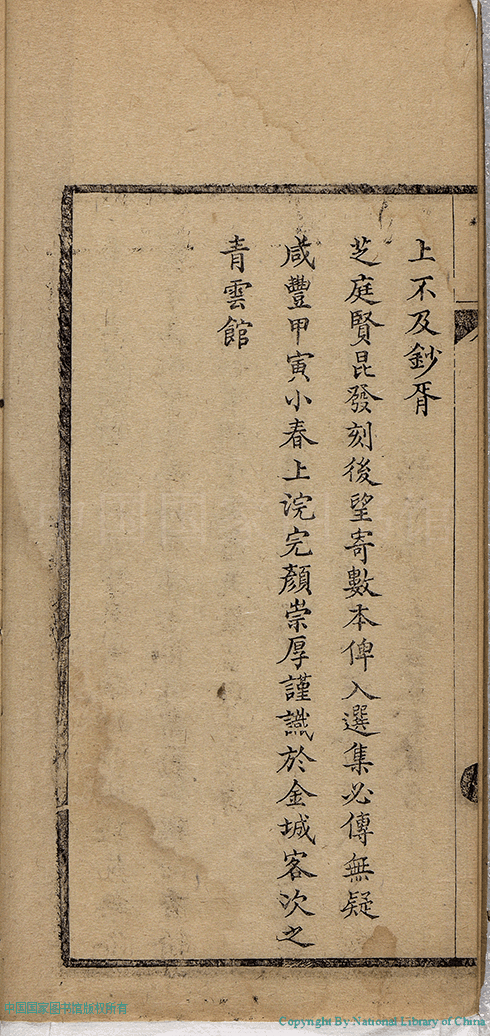 上不及鈔胥
芝庭賢昆發刻後望寄數本俾入選集必傳無疑
咸豐甲寅小春上浣完顏崇厚謹識於金城客次之
青雲館
中国国家图书馆版权所有
Copyright By National Library of China